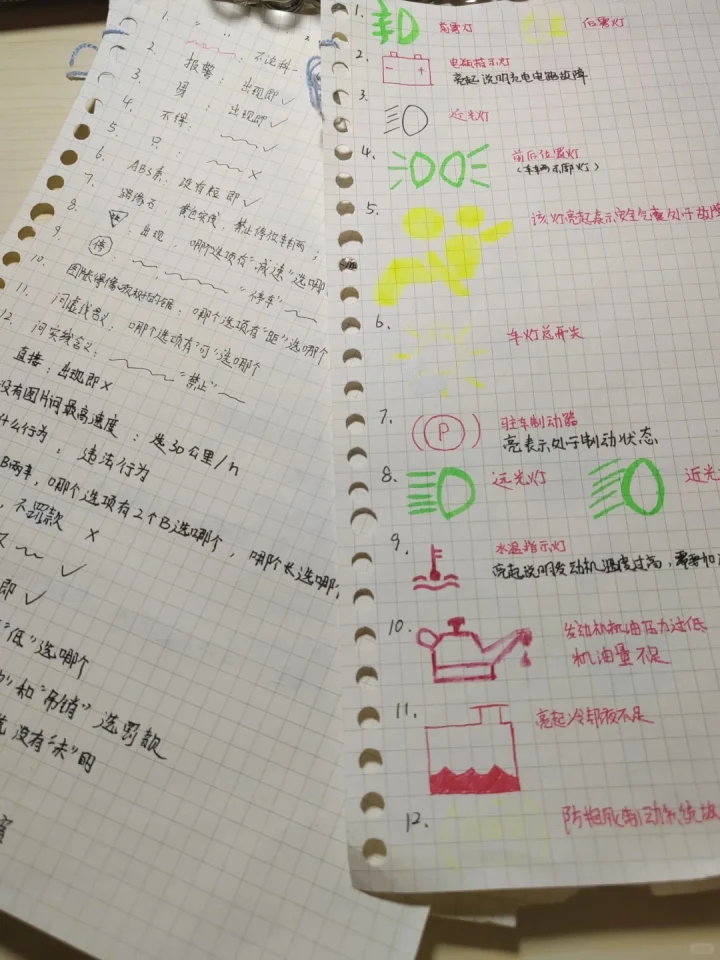 1.
2. 不论料
3. 报警：出现即✓
4. 易：出现即✓
5. 不得：✓
6. 只：×
7. ABS系，没有短即✓
8. 黄色实线，禁止停放车辆；
9. 出现，哪个选项有"减速"选哪
10. 停 "停车"
11. 哪个选项有"距"选哪个
12. 问虚线含义：哪个选项有"可"选哪个
问实线含义："禁止"
直接：出现即×
没有图片问最高速度：选30公里/h
什么行为：违法行为
B两车，哪个选项有2个B选哪个，哪个长选哪；
，不罚款 ×
✓
即✓
"低"选哪个
"和"吊销"选罚款
没有"未"的
1. 前雾灯
后雾灯
2. - +
电瓶指示灯
亮起说明充电电路故障
3. 近光灯
4. 前后位置灯
（车辆示廓灯）
5. 该灯亮起表示安全气囊处于故障
6. 车灯总开关
7. (P) 驻车制动器
亮表示处于制动状态
8. 远光灯
近光
9. 水温指示灯
亮起说明发动机温度过高，需要加
10. 发动机机油压力过低
机油量不足
11. 亮起冷却液不足
12. 防抱死制动系统故